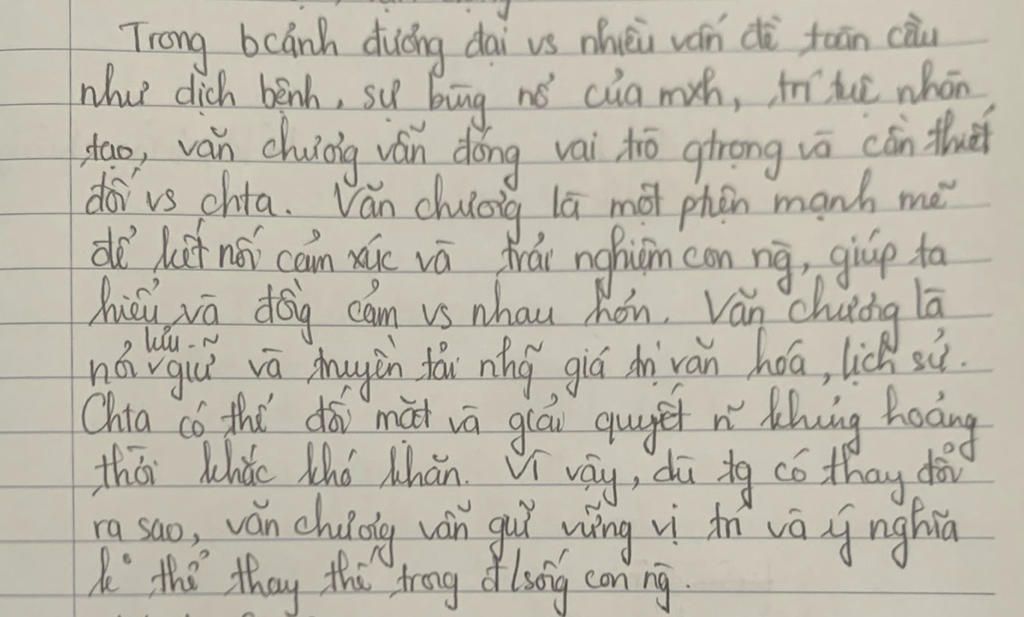 Trong bcảnh đương đại vs nhiều vấn đề toàn cầu
như dịch bệnh, sự bùng nổ của mxh, trí tuệ nhân
tạo, văn chương vẫn đóng vai trò qtrọng và cần thiết
đối vs chta. Văn chương là một phện mạnh mẽ
để kết nối cảm xúc và trải nghiệm con ng̀, giúp ta
hiểu và đồng cảm vs nhau hơn. Văn chương là
nơi lưu giữ và truyền tải nhg̃ giá trị văn hóa, lịch sử.
Chta có thể đối mặt và giải quyết n~ khủng hoảng
thời khắc khó khăn. Vì vậy, dù tg có thay đổi
ra sao, văn chương vẫn giữ vững vị trí và ý nghĩa
k° thể thay thế trong đ/sống con ng̀.